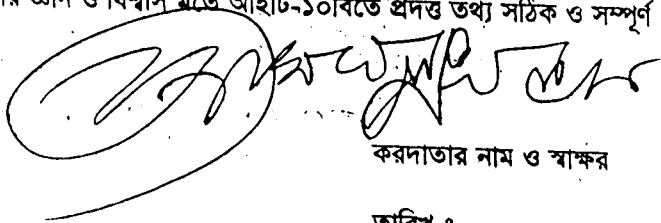 জ্ঞান ও বিশ্বাস মতে আইটি-১০বিতে প্রদত্ত তথ্য সঠিক ও সম্পূর্ণ
করদাতার নাম ও স্বাক্ষর
তারিখ ঃ